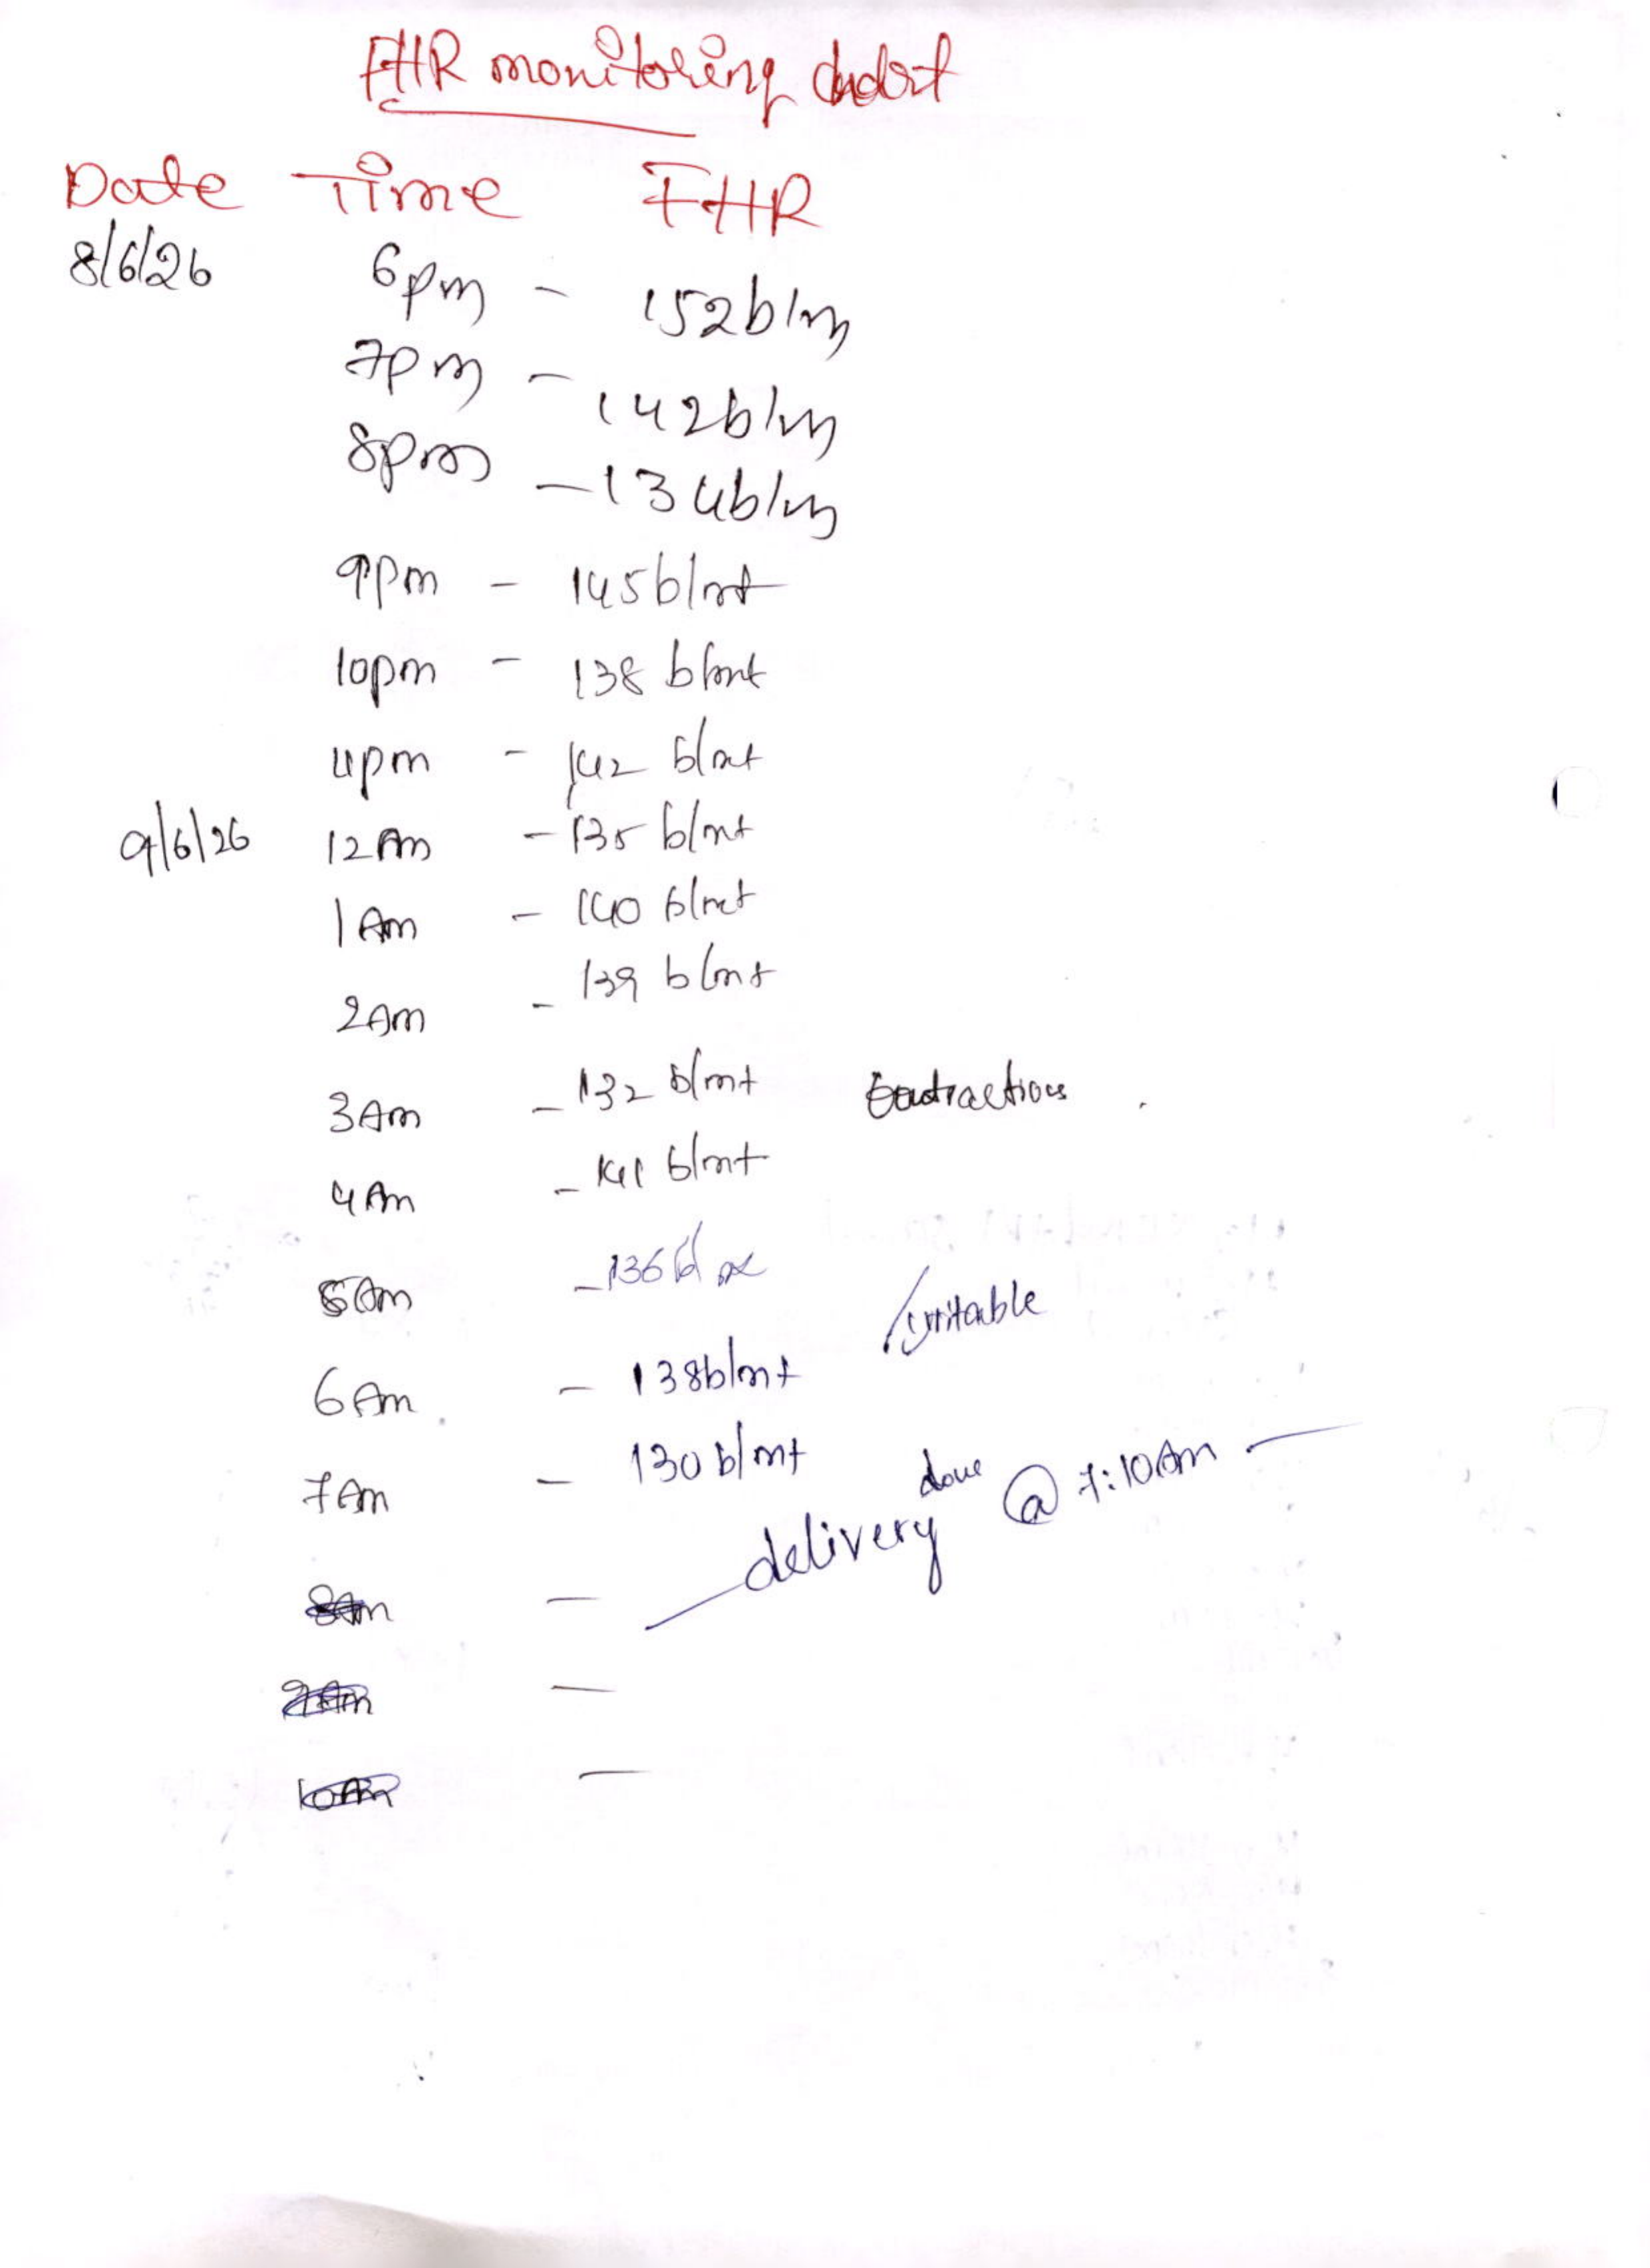 FHR monitoring chart
Date Time FHR
8/6/26 6pm - 152b/m
7pm - 142b/m
8pm - 134b/m
9pm - 145b/mt
10pm - 138 b/mt
11pm - 142 b/mt
9/6/26 12Am - 135 b/mt
1Am - 140 b/mt
2Am - 139 b/mt
3Am - 132 b/mt Contractions
4Am - 141 b/mt
5Am - 136
6Am - 138b/mt irritable
7Am - 130 b/mt
delivery done @ 7:10Am
8Am -
9Am -
10Am -